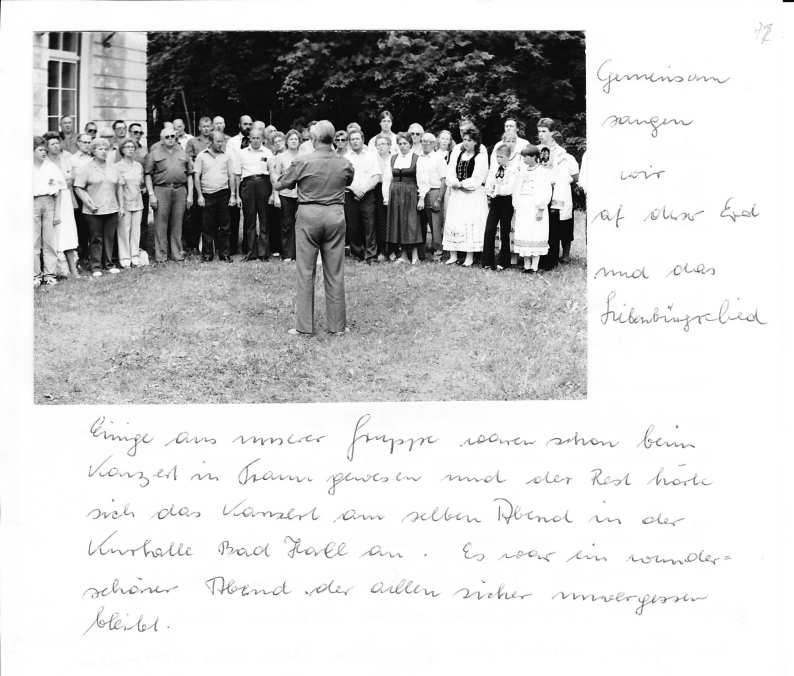 Gemeinsam
sangen
wir
af deser Erd
und das
Siebenbürgenlied
Einige aus unserer Gruppe waren schon beim
Konzert in Traun gewesen und der Rest hörte
sich das Konzert am selben Abend in der
Kurhalle Bad Hall an. Es war ein wunder=
schöner Abend der allen sicher unvergessen
bleibt.